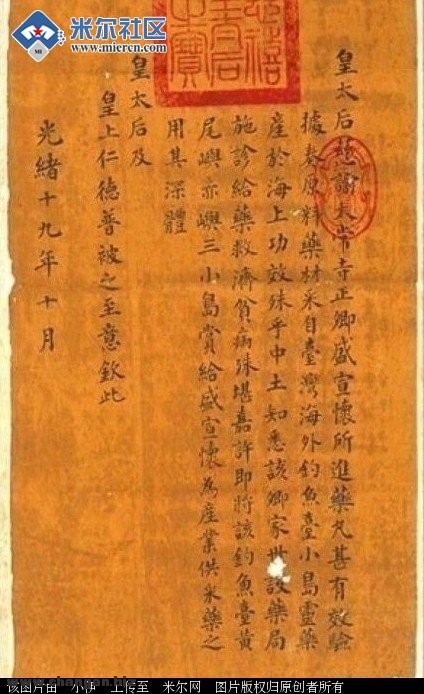 米尔社区
www.miercn.com
皇太后慈諭太常寺正卿盛宣懷所進藥丸甚有效驗
據奏原料藥材采自臺灣海外釣魚臺小島靈藥
產於海上功效殊乎中土知悉該卿家世設藥局
施診給藥救濟貧病殊堪嘉許即將該釣魚臺黃
尾嶼赤嶼三小島賞給盛宣懷為產業供采藥之
用其深體
皇太后及
皇上仁德普被之至意欽此
光緒十九年十月
该图片由 上传至 米尔网 图片版权归原创者所有